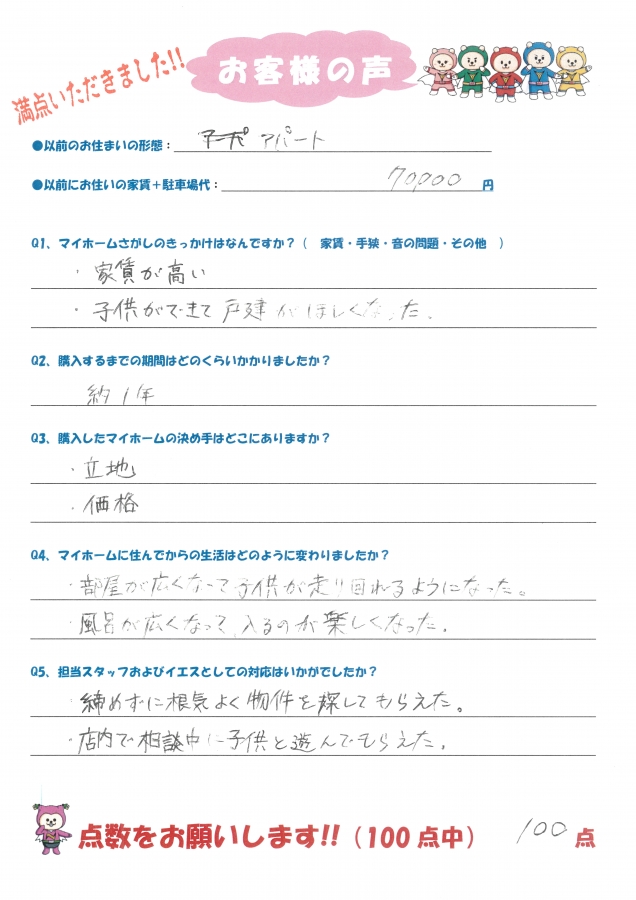 満点いただきました!!
お客様の声
●以前のお住まいの形態： アパート
●以前にお住いの家賃＋駐車場代： 70000 円
Q1、マイホームさがしのきっかけはなんですか？（ 家賃・手狭・音の問題・その他 ）
・家賃が高い
・子供ができて戸建がほしくなった。
Q2、購入するまでの期間はどのくらいかかりましたか？
約1年
Q3、購入したマイホームの決め手はどこにありますか？
・立地
・価格
Q4、マイホームに住んでからの生活はどのように変わりましたか？
・部屋が広くなって子供が走り回れるようになった。
・風呂が広くなって、入るのが楽しくなった。
Q5、担当スタッフおよびイエスとしての対応はいかがでしたか？
・締めずに根気よく物件を探してもらえた。
・店内で相談中に子供と遊んでもらえた。
点数をお願いします!!（100点中） 100 点